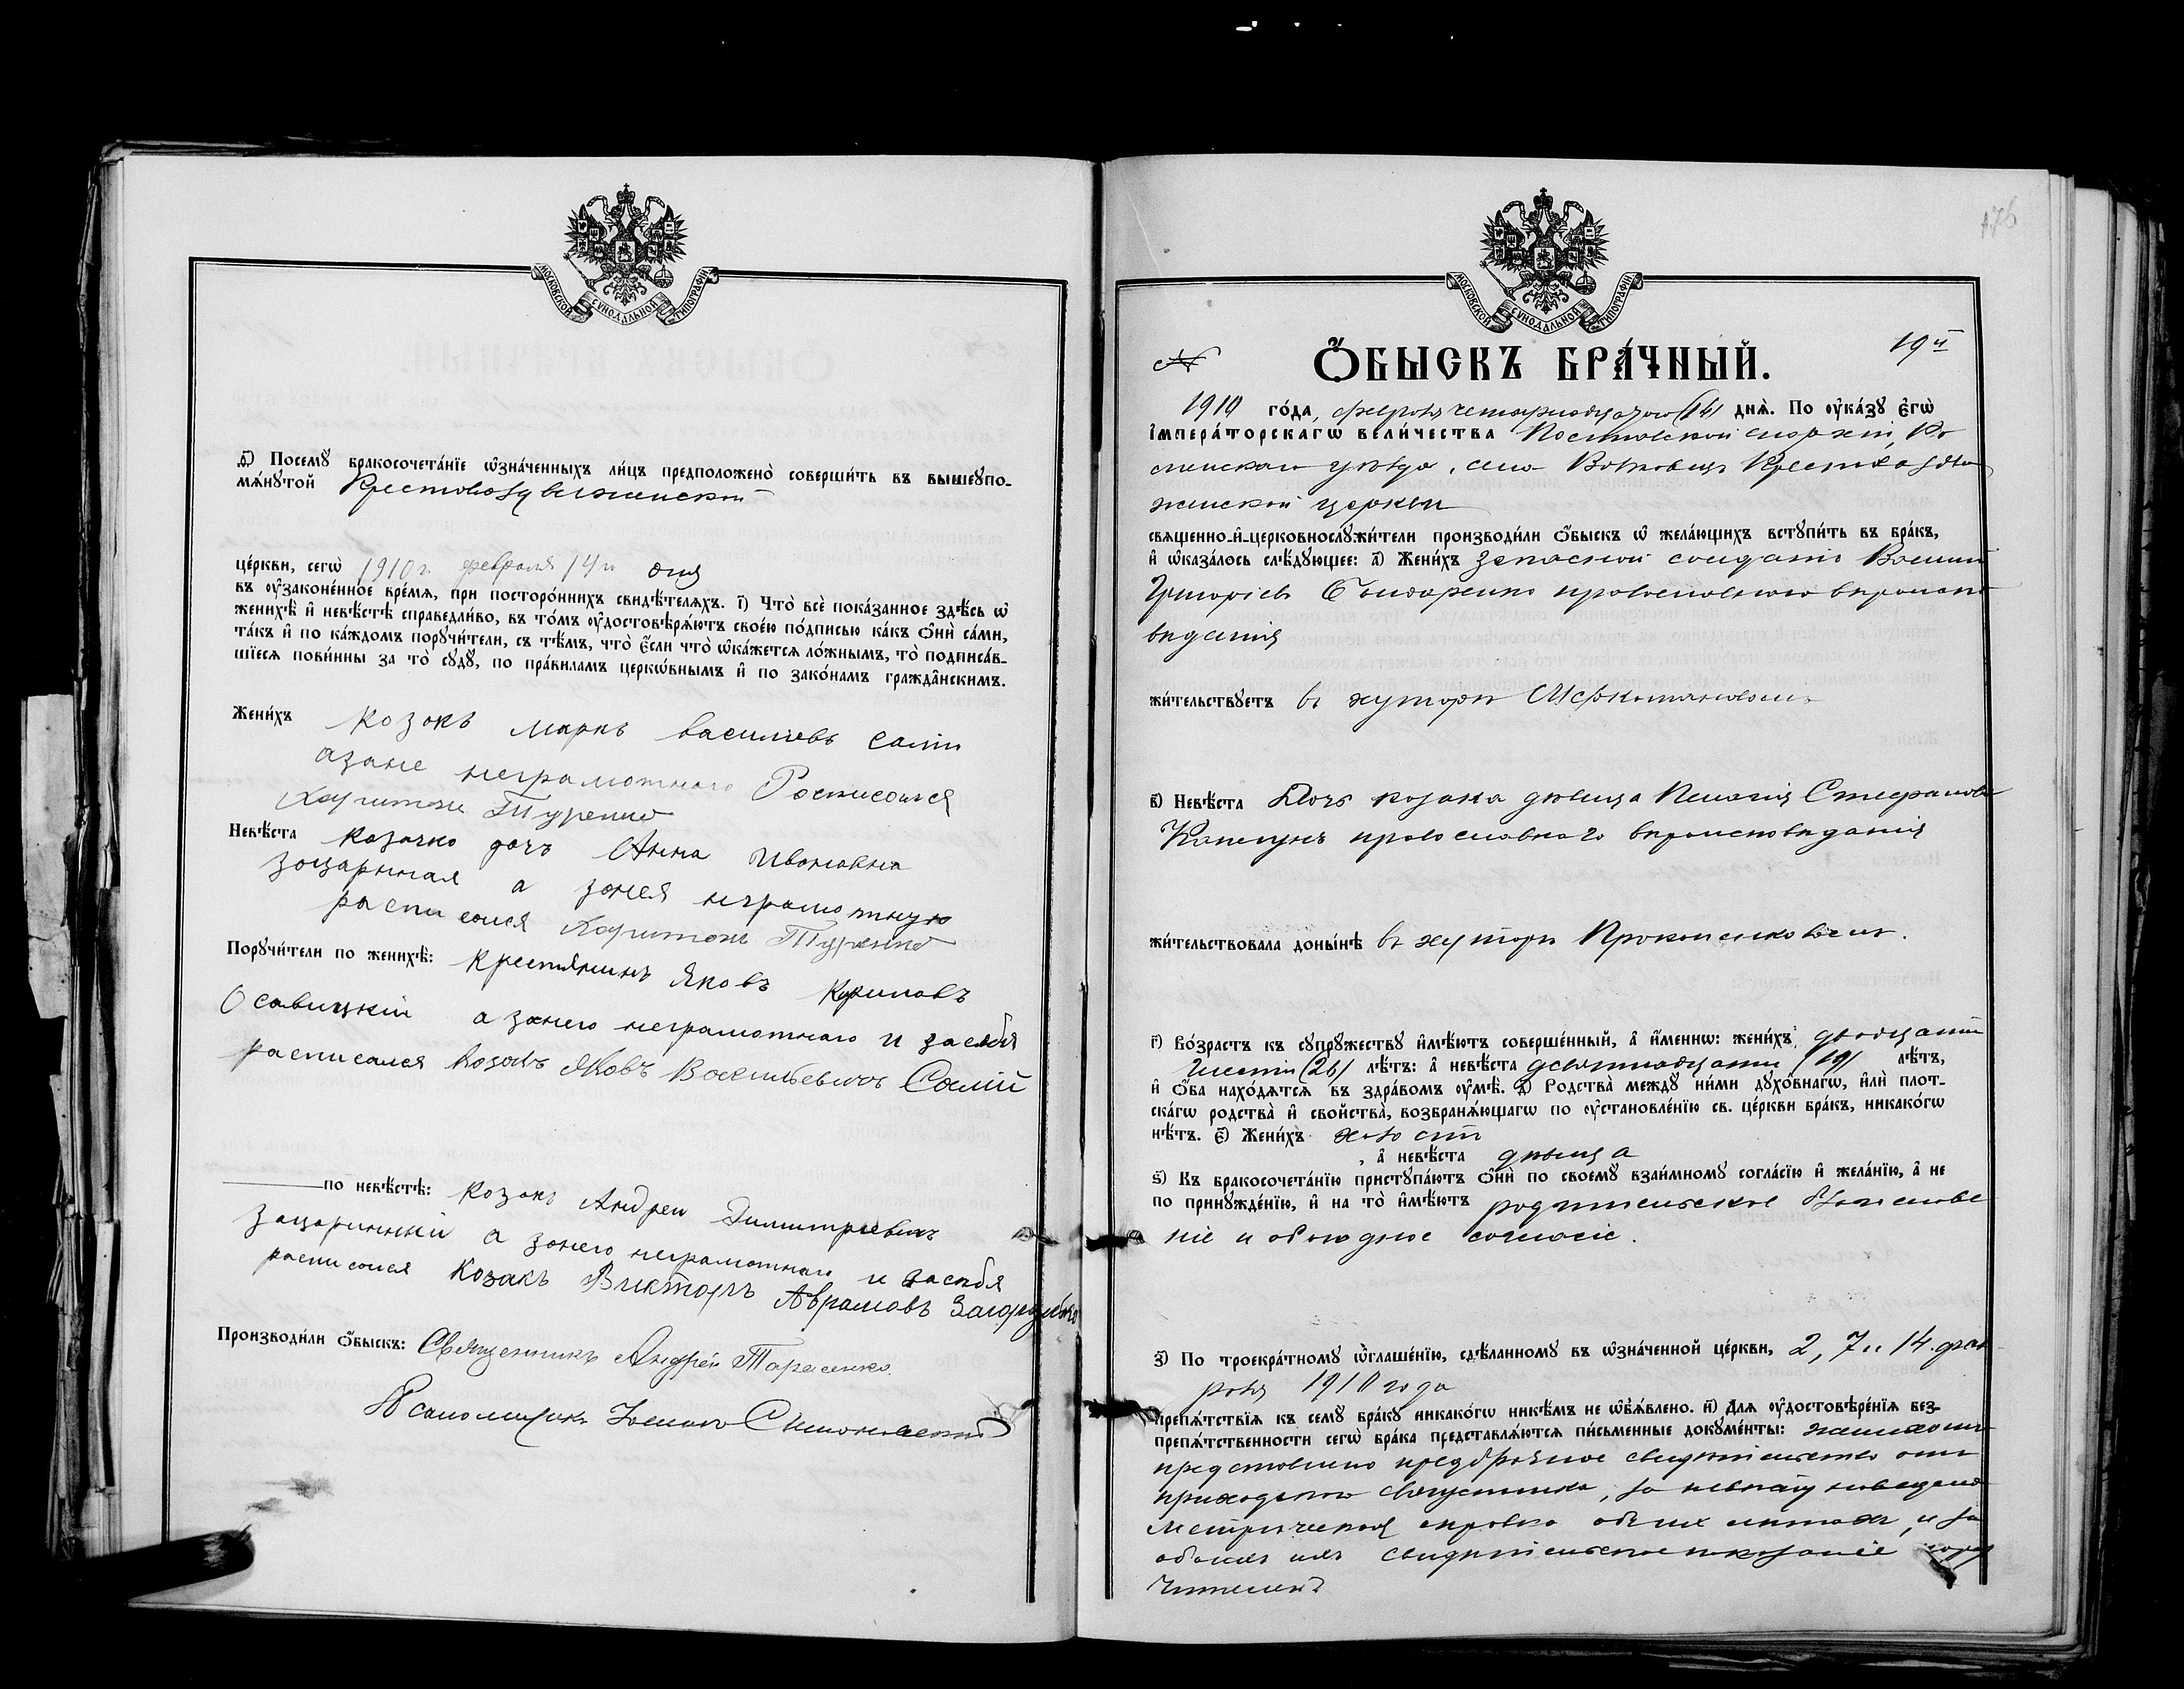 МОСКОВСКОЙ СУНОДАЛЬНОЙ ТИПОГРАФІИ
ѳ҃) Посемꙋ̀ бракосочета́нїе ѡ҆зна́ченныхъ ли́цъ предположено̀ соверши́ть въ вышеꙋпо-
мѧ́нꙋтой Крестовоздвиженской
це́ркви, сегѡ̀ 1910 г. февраля 14 го дня
въ ᲂу҆зако́не́нное вре́мя, при посторо́ннихъ свидѣ́теляхъ. і҃) Что̀ всѐ пока́занное здѣ́сь ѡ҆
женихѣ̀ и҆ невѣ́стѣ справедли́во, въ то́мъ ᲂу҆достовѣрѧ́ютъ свое́ю по́дписью ка́къ ѻ҆нѝ са́ми,
та́къ и҆ по ка́ждомъ порꙋчи́тели, съ тѣ́мъ, что̀ є҆́сли что̀ ѡ҆ка́жется ло́жнымъ, то̀ подписа́в-
шїеся пови́нны за то̀ сꙋдꙋ̀, по пра́виламъ церкѡ́внымъ и҆ по зако́намъ гражда̂нскимъ.
Жени́хъ Козакъ Маркъ Василиевъ Салій
азане неграмотнаго Росписался
Харитонъ Туренко
Невѣ́ста Козачко дочъ Анна Ивановна
зацаринная а занея неграмотную
расписался Харитонъ Туренко
Порꙋчи́тели по женихѣ̀: Крестянинъ Яковъ Кириловъ
Осавицкій а занего неграмотнаго и засебя
расписался козакъ Яковъ Васильевичъ Салій
по невѣ́стѣ: Козакъ Андреи Димитриевичъ
зацаринній а занего неграмотнаго и засебя
расписался Козакъ Викторъ Аврамовъ Загорулько
Производи́ли ѻ҆́быскъ: Священникъ Андрей Тарасенко.
Псаломщикъ
МОСКОВСКОЙ СУНОДАЛЬНОЙ ТИПОГРАФІИ
176
№ 19й
Ѻ҆́БЫСКЪ БРА́ЧНЫЙ.
1910 го́да, февраля четырнадцатого (14) днѧ̀. По ᲂу҆ка́зꙋ Є҆гѡ̀
І҆мпера́торскагѡ вели́чества Полтавской епархіи, Ро
менскаго уѣзда, села Волковец Крестовоздви
женской церкви
свѧще́нно-и҆-церковнослꙋжи́тели производи́ли ѻ҆́быскъ ѡ҆ жела́ющихъ встꙋпи́ть въ бра́къ,
и҆ ѡ҆каза́лось слѣ́дꙋющее: а҃) Жени́хъ запасной солдатъ Василій
Григоріевъ Бондаренко православного вѣроиспо
вѣданія
жи́тельствꙋетъ въ хуторѣ
в҃) Невѣ́ста Дочь козака дѣвица Пелагія Стефанова
Капелунъ православнаго вѣроисповѣданія
жи́тельствовала доны́нѣ въ хуторѣ Прокопенковомъ.
г҃) Во́зрастъ къ сꙋпрꙋ́жествꙋ и҆мѣ́ютъ соверше́нный, а҆ и҆́менно: жени́хъ двадцати
шести (26) лѣ́тъ: а҆ невѣ́ста девятнадцати (19) лѣ́тъ,
и҆ ѻ҆́ба нахо́дятся въ здра́вомъ ᲂу҆мѣ̀. д҃) Родства̀ междꙋ̀ ни́ми дꙋхо́внагѡ, и҆лѝ плот-
ска́гѡ родства̀ и҆ сво́йства̀, возбранѧ́ющагѡ по ᲂу҆становле́нїю св. це́ркви бра́къ, никако́гѡ
нѣ́тъ. є҃) Жени́хъ холостъ
, а҆ невѣ́ста дѣвица
ѕ҃) Къ бракосочета́нїю пристꙋпа́ютъ ѻ҆нѝ по своемꙋ̀ взаи́мномꙋ согла́сїю и҆ жела́нїю, а҆ не
по принꙋжде́нїю, и҆ на то̀ и҆мѣ́ютъ родительское благослове
ніе и обоюдное согласіе.
з҃) По троекра́тномꙋ ѡ҆глаше́нїю, сдѣ́ланномꙋ въ ѡ҆зна́ченной це́ркви, 2, 7 и 14 фев
раля 1910 года
препѧ́тствїѧ къ семꙋ̀ бра́кꙋ никако́гѡ никѣ́мъ не ѡ҆б̾ѧ́влено. и҃) Для ᲂу҆достовѣре́нїя без-
препѧ́тственности сегѡ̀ бра́ка представлѧ́ются пи́сьменные докꙋме́нты: женихомъ
представлено предбрачное свидѣтельство отъ
приходского священника, за невѣсту наведена
метрическая справка объ ихъ лѣтахъ, и за
обоихъ ихъ свидѣтельское показаніе пору
чителей